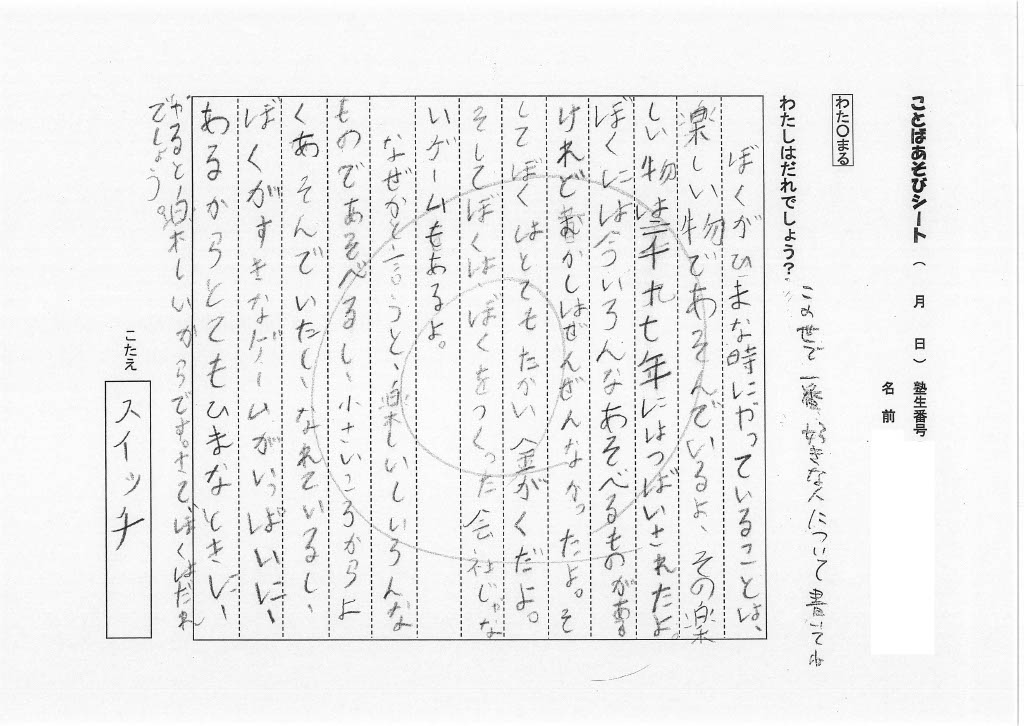 ことばあそびシート ( 月 日 ) 塾生番号
名前
わた〇まる
わたしはだれでしょう?
この世で一番、好きな人について書いてね
ぼくがひまな時にやっていることは、
楽しい物であそんでいるよ、その楽
しい物は二千十七年にはつばいされたよ。
ぼくには今ういろんなあそべるものがある
けれどむかしはぜんぜんなかったよ。そ
してぼくはとてもたかい金がくだよ。
そしてぼくは、ぼくをつくった会社じゃな
いゲームもあるよ。
なぜかと言うと、楽しいしいろんな
ものであそべるし、小さいころからよ
くあそんでいたし、なれているし、
ぼくがすきなゲームがいっぱいに、
あるからとてもひまなときに、
やると楽しいからです。さて、ぼくはだれ
でしょう。
こたえ
スイッチ